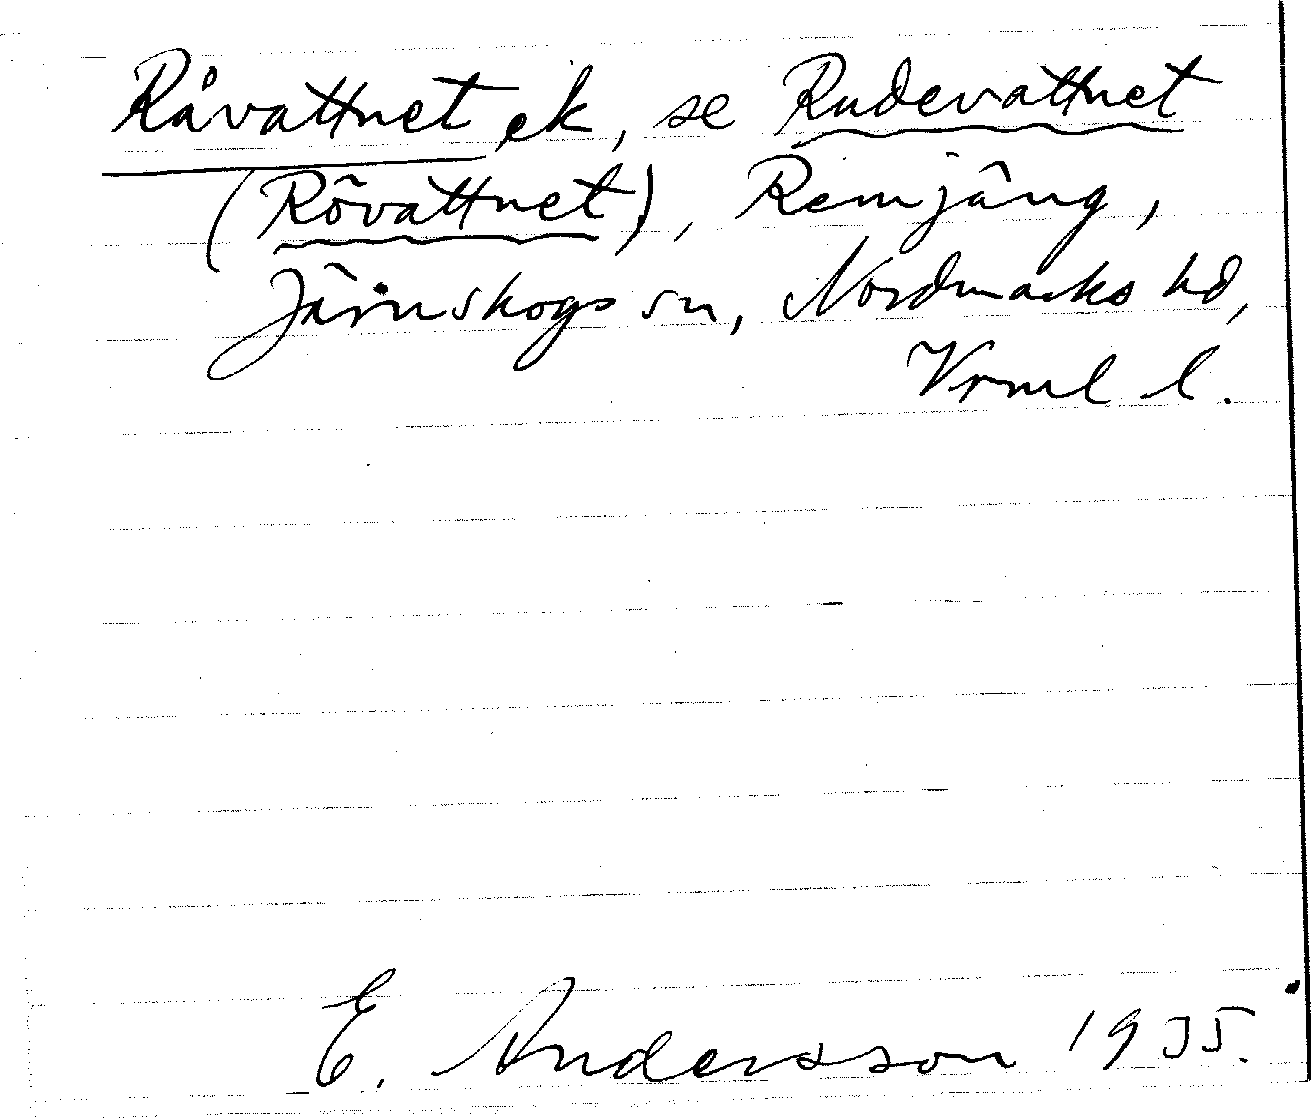 Råvattnet ek, se Rudevattnet
(Rõvattnet), Remjäng,
Järnskogs sn, Nordmarks hd,
Vrml l.
E. Andersson 1935.